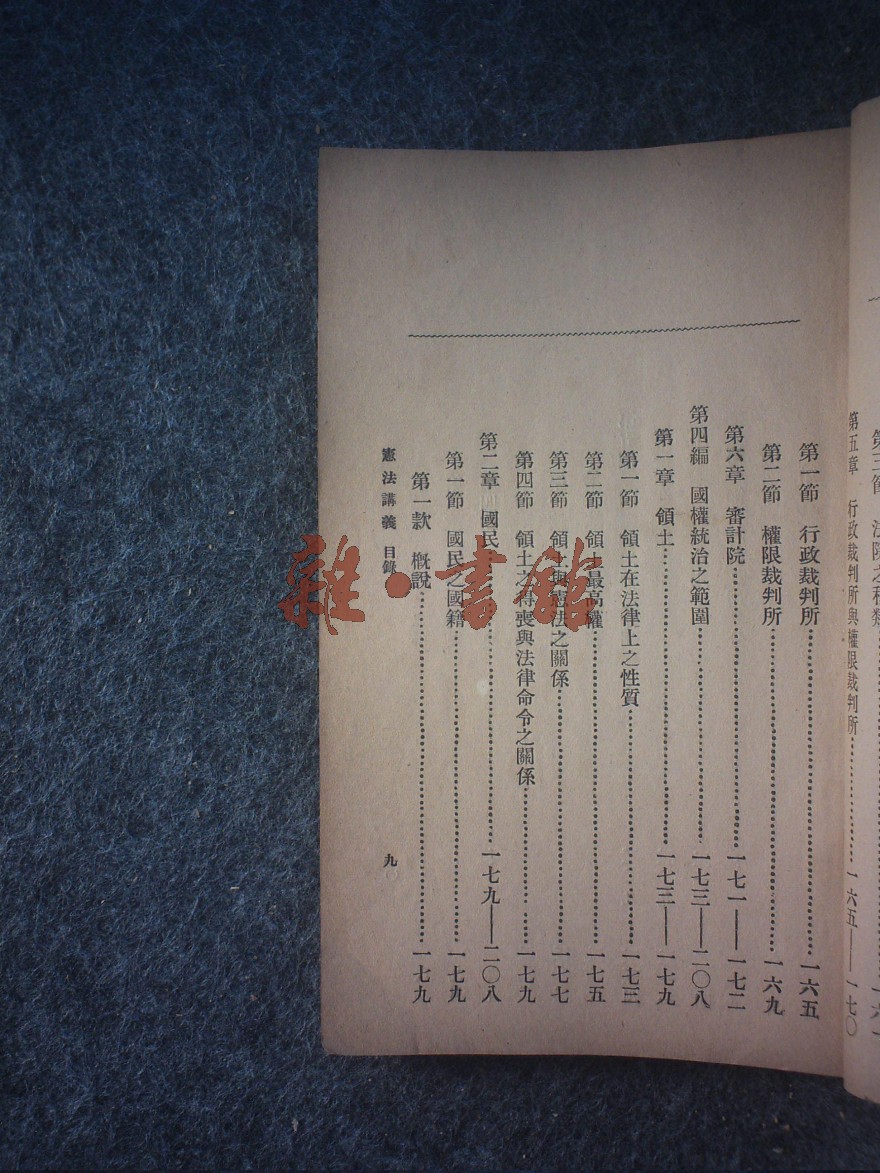 第五章　行政裁判所與權限裁判所……一六五——一七〇
第一節　行政裁判所……一六五
第二節　權限裁判所……一六九
第六章　審計院……一七一——一七二
第四編　國權統治之範圍……一七三——二〇八
第一章　領土……一七三——一七九
第一節　領土在法律上之性質……一七三
第二節　領土最高權……一七五
第三節　領土與憲法之關係……一七七
第四節　領土之得喪與法律命令之關係……一七九
第二章　國民……一七九——二〇八
第一節　國民之國籍……一七九
第一款　概說……一七九
憲法講義　目錄
九
雜·書館